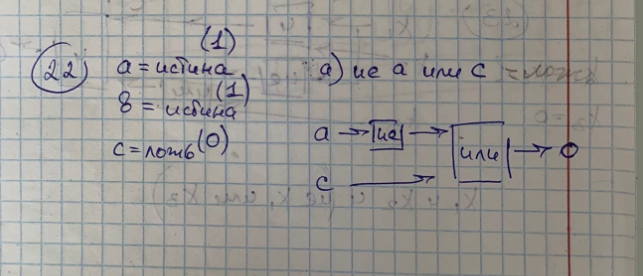 (1)
22) a = истина
в = истина (1)
c = ложь (0)
а) не а или с = ложь
a → не → или → 0
c →